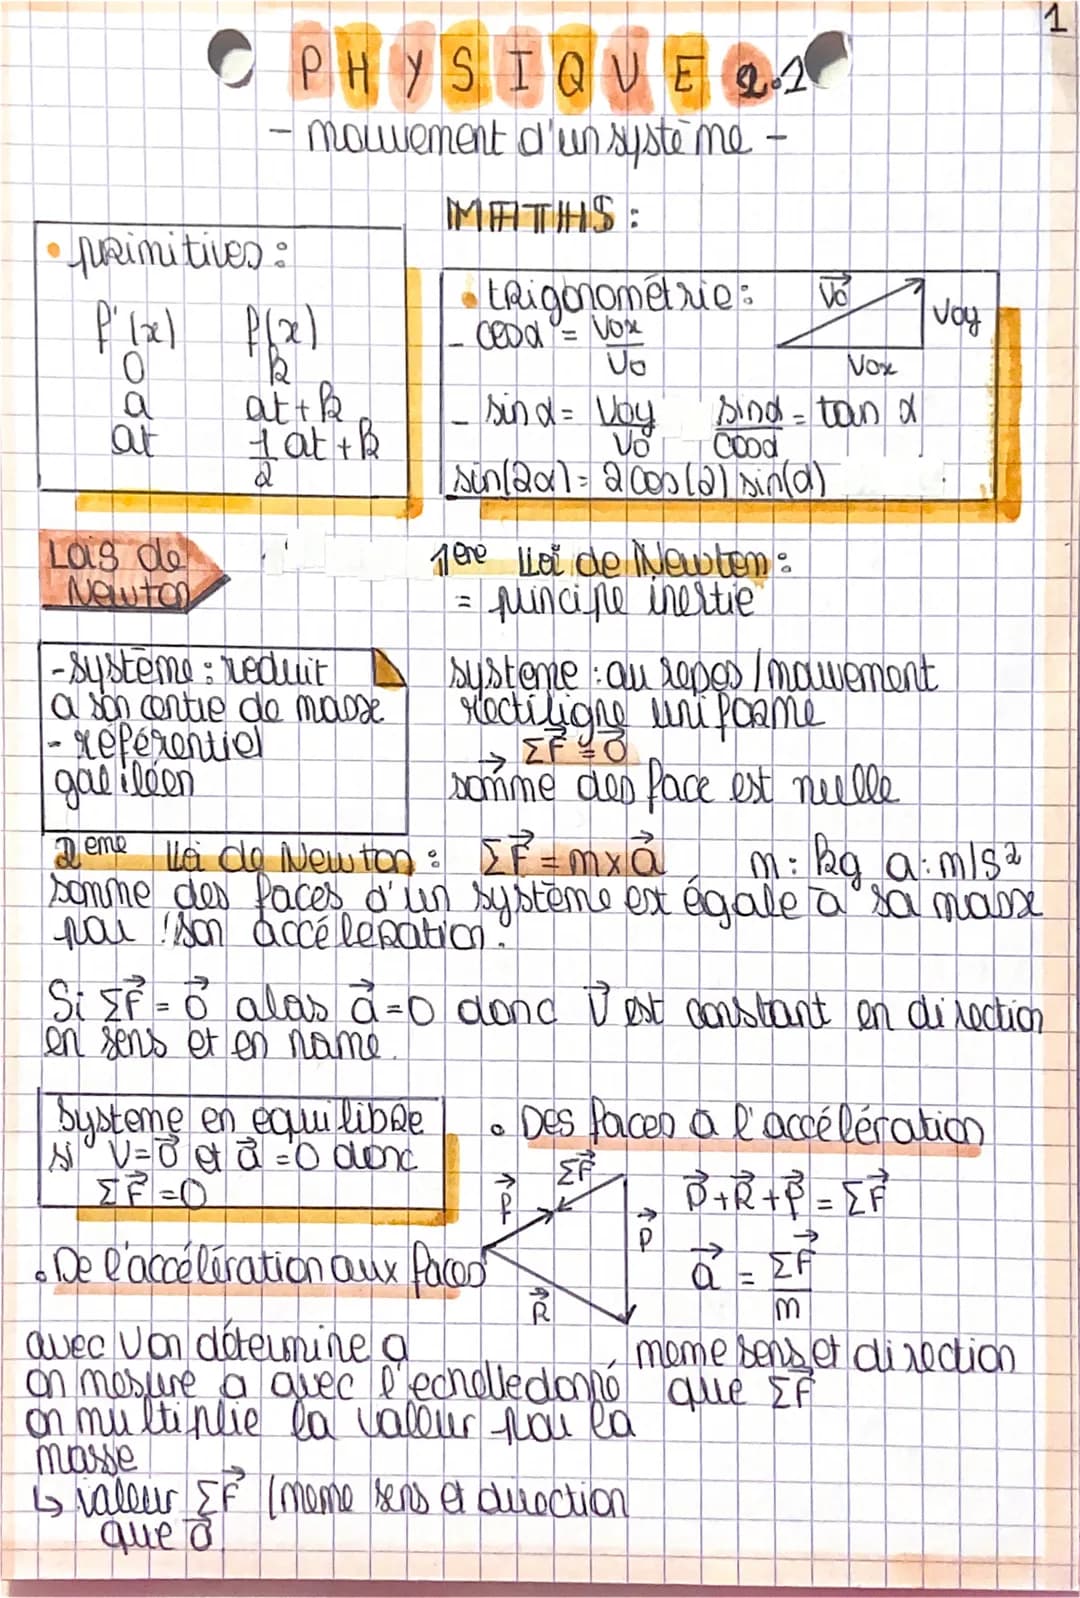 1
PHYSIQUE 2.1
- mouvement d'un système -
MATHS :
• primitives :
f'(x) f(x)
0 k
a at + k
at 1/2 at + k
• trigonométrie :
V⃗o Voy Vox
- cosα = Vox/Vo
- sinα = Voy/Vo sinα/cosα = tan α
sin(2α) = 2 cos(2) sin(α)
Lois de
Newton
1ère Loi de Newton :
= principe inertie
- système : reduit
a son centre de masse
- référentiel
galiléen
systeme : au repos / mouvement
rectiligne uniforme
→ ΣF⃗ = 0⃗
somme des force est nulle
2eme Loi de Newton : ΣF⃗ = m x a⃗ m : kg a : m/s²
somme des forces d'un système est égale a sa masse
par ! son accéleration.
Si ΣF⃗ = 0⃗ alors a⃗ = 0 donc V⃗ est constant en direction
en sens et en norme.
Systeme en equilibre
si V = 0⃗ et a⃗ = 0 donc
ΣF⃗ = 0
• Des forces a l'accélération
ΣF⃗
f⃗
P⃗
R⃗
P⃗ + R⃗ + f⃗ = ΣF⃗
a⃗ = ΣF⃗/m
meme sens et direction
que ΣF⃗
• De l'accélération aux forces
avec V on détermine a
on mesure a avec l'echelle donné
on multiplie la valeur par la
masse
↳ valeur ΣF⃗ (meme sens et direction
que a⃗